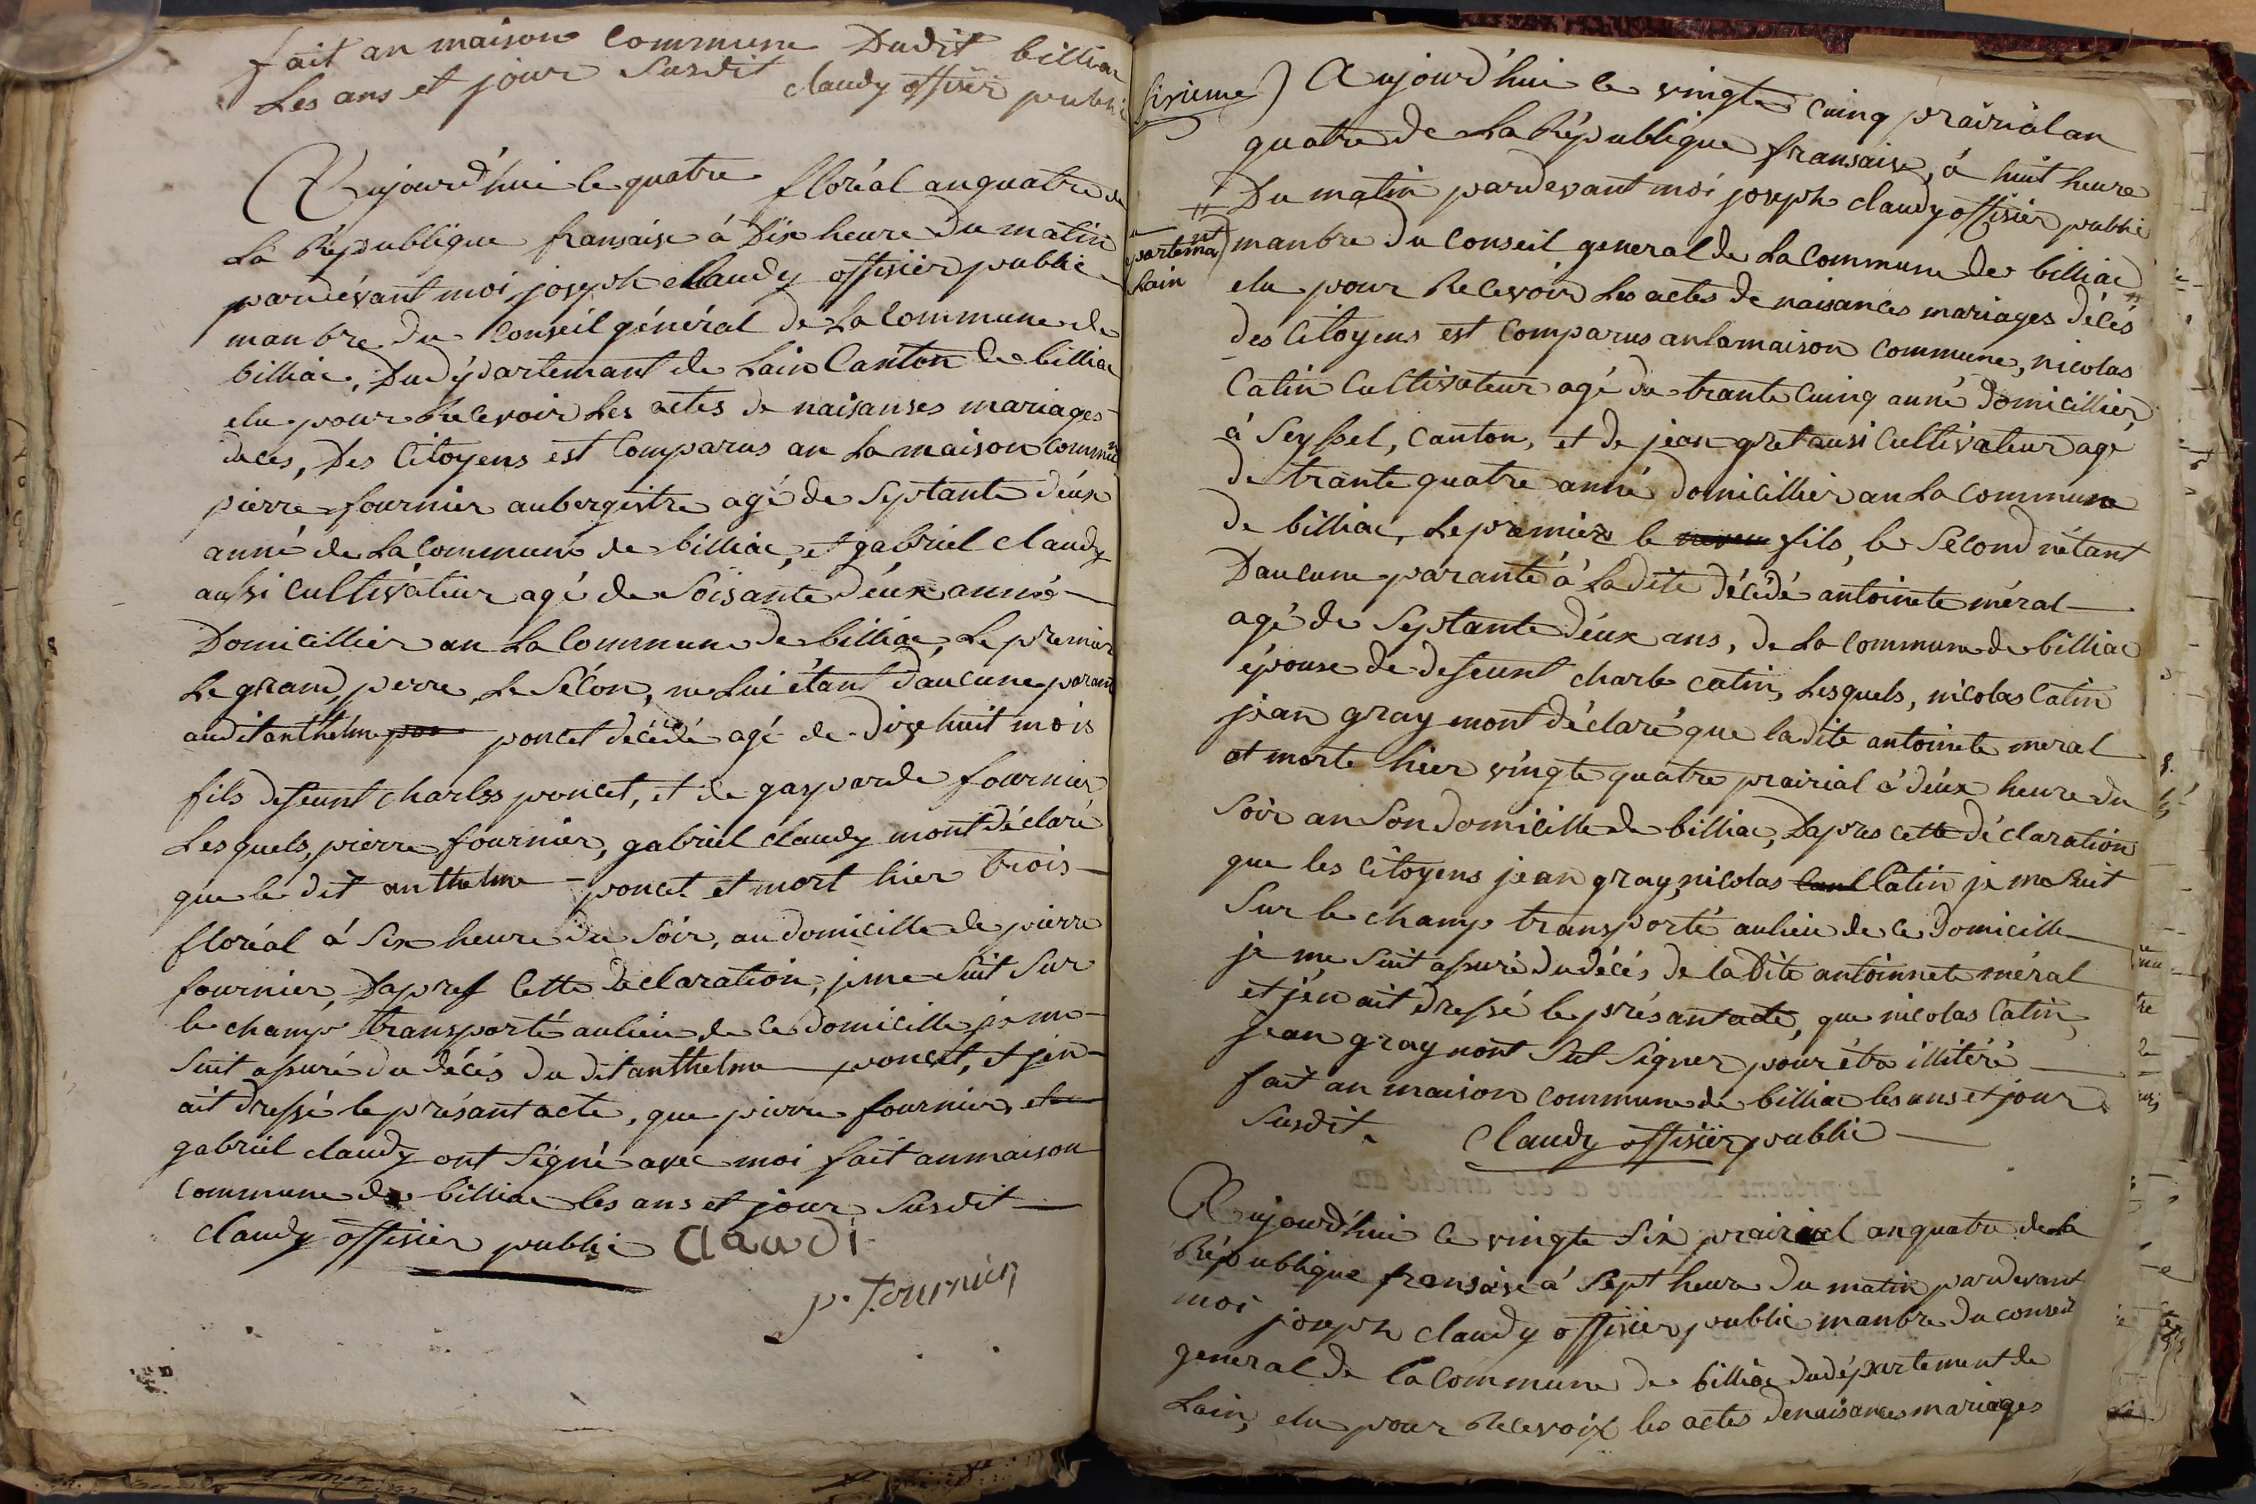 fait an maison commune Dudit billiac
Les ans et jour Susdit claudy offisier public
Aujourd'hui le quatre floréal an quatre de
La République fransaise à Dix heure Du matin
pardévant moi joseph Claudy offisier public
manbre du Conseil général de La Commune de
billiac, Du départemant de Lain Canton de billiac
elu pour Recevoir Les actes de naisanses mariages
décés, Des Citoyens est Comparus an La maison Commune
pierre fournier aubergistre agé de Septante déux
anné de La Commune de billiac, et gabriel claudy
aussi Cultivateur agé de Soisante déux anné
Domicillier an La Commune de billiac, Le premier
Le grand perre, Le Sécon, ne Lui étant Daucune parant
audit anthelme poncet décédé agé de dixe huit mois
fils defeunt charles poncet, et de gasparde fournier
Lesquels, pierre fournier, gabriel claudy mont déclaré
que le dit anthelme poncet et mort hier trois
floréal à Six heure du Soir, au domicille de pierre
fournier, Dapres Cette déclaration, je me Suit Sur
le champ transporté au lieu de ce domicille je me
Suit assuré du décés du dit anthelme poncet, et jén
ait dressé le présant acte, que pierre fournier, et
gabriel claudy ont Signé avec moi fait an maison
commune de billiac les ans et jour Susdit
claudy offisier public Claudi
p. fournier
sixieme) Aujourd'hui le vingte cuinq prairial an
quatre de La République fransaise, à huit heure
Du matin pardevant moi joseph claudy offisier public
manbre du Conseil general de La Commune de billiac
partemant
Lain
elu pour Recevoir Les actes de naisances mariages décés
des Citoyens est Comparus an la maison commune, nicolas
Catin Cultivateur agé de trante cuinq anné domicillier
à Seyssel, canton, et de jean gret ausi Cultivateur agé
de trante quatre anné domicillier an La Commune
de billiac, Le premier le fils, le Second nétant
Daucune parante à Ladite décédé antoinete méral
agé de Septante déux ans, de La commune de billiac
épouse de defeunt charle catin, Lesquels, nicolas Catin
jean gray mont déclaré que ladite antoinete meral
et morte hier vingte quatre prairial à déux heure du
Soir an Son domicille de billiac, Dapres cette déclaration
que les Citoyens jean gray, nicolas Catin je me Suit
Sur le champ transporté au lieu de ce domicille
je me Suit assuré du décés de la Dite antoinnete méral
et jén ait dressé le présant acte, que nicolas Catin,
jean gray nont Sut Signer pour étre illitéré
fait an maison commune de billiac les ans et jour
Susdit. Claudy offisier public
Aujourd'hui le vingte Six prairial an quatre de La
République fransaise à Sept heure Du matin pardevant
moi joseph claudy offisier public manbre du conseil
general de La Commune de billiac du département de
Lain, elu pour Recevoir les actes de naisances mariages